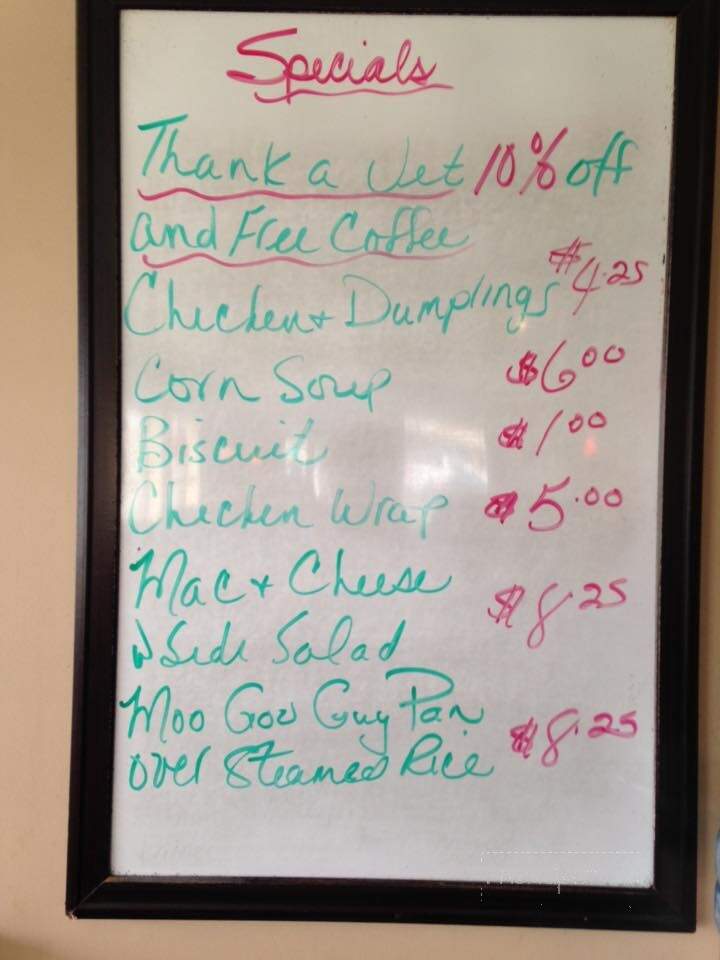 Specials
Thank a Vet 10% off
and Free Coffee
Chicken + Dumplings $4.25
Corn Soup $6.00
Biscuit $1.00
Chicken Wrap $5.00
Mac + Cheese
w Side Salad $8.25
Moo Goo Guy Pan
over Steamed Rice $8.25